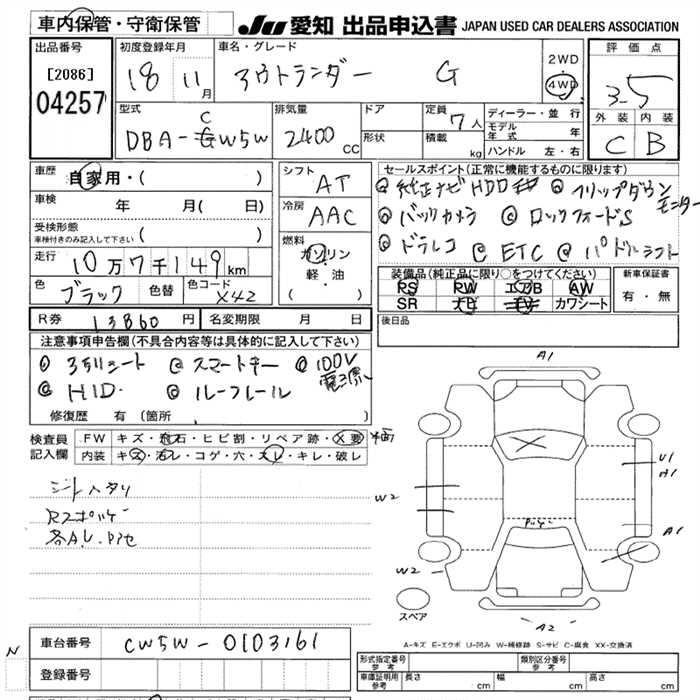 車内保管・守衛保管 JU 愛知 出品申込書 JAPAN USED CAR DEALERS ASSOCIATION
出品番号 初度登録年月 車名・グレード 評価点
[2086] 18 11月 アウトランダー G 2WD 4WD 3.5
04257
型式 排気量 ドア 定員 ディーラー・並行 外装 内装
DBA-CW5W 2400cc 形状 7人 モデル年式 年
積載 kg ハンドル 左・右 C B
車歴 自家用・( ) シフト AT セールスポイント(正常に機能するものに限ります)
車検 年 月( 日) 冷房 AAC ◎純正ナビHDD ◎フリップダウンモニター
受検形態 ◎バックカメラ ◎ロックフォードS
車検付きのみ記入して下さい ( ) 燃料 ◎ドラレコ ◎ETC ◎パドルシフト
走行 10万7千149km ガソリン 装備品(純正品に限り○をつけてください) 新車保証書
色 ブラック 色替 色コード X42 軽・油 ( ) PS PW エアB AW 有・無
SR ナビ TV カワシート
R券 13860円 名変期限 月 日 後日品
注意事項申告欄(不具合内容等は具体的に記入して下さい)
◎3列シート ◎スマートキー ◎100V電源
◎HID ◎ルーフレール
修復歴 有 (箇所 )
検査員記入欄 FW キズ・飛石・ヒビ割・リペア跡・X要
内装 キズ・汚レ・コゲ・穴・スレ・キレ・破レ
シートヘタリ
Rスポイラー
各A.U.P他
A1
U1
A1
W2
A1
W2
A2
スペア
A-キズ E-エクボ U-凹み W-補修跡 S-サビ C-腐食 XX-交換済
N
車台番号 CW5W-0103161
登録番号
形式指定番号 参考 類別区分番号 参考
車庫証明用 参考 長さ cm 幅 cm 高さ cm